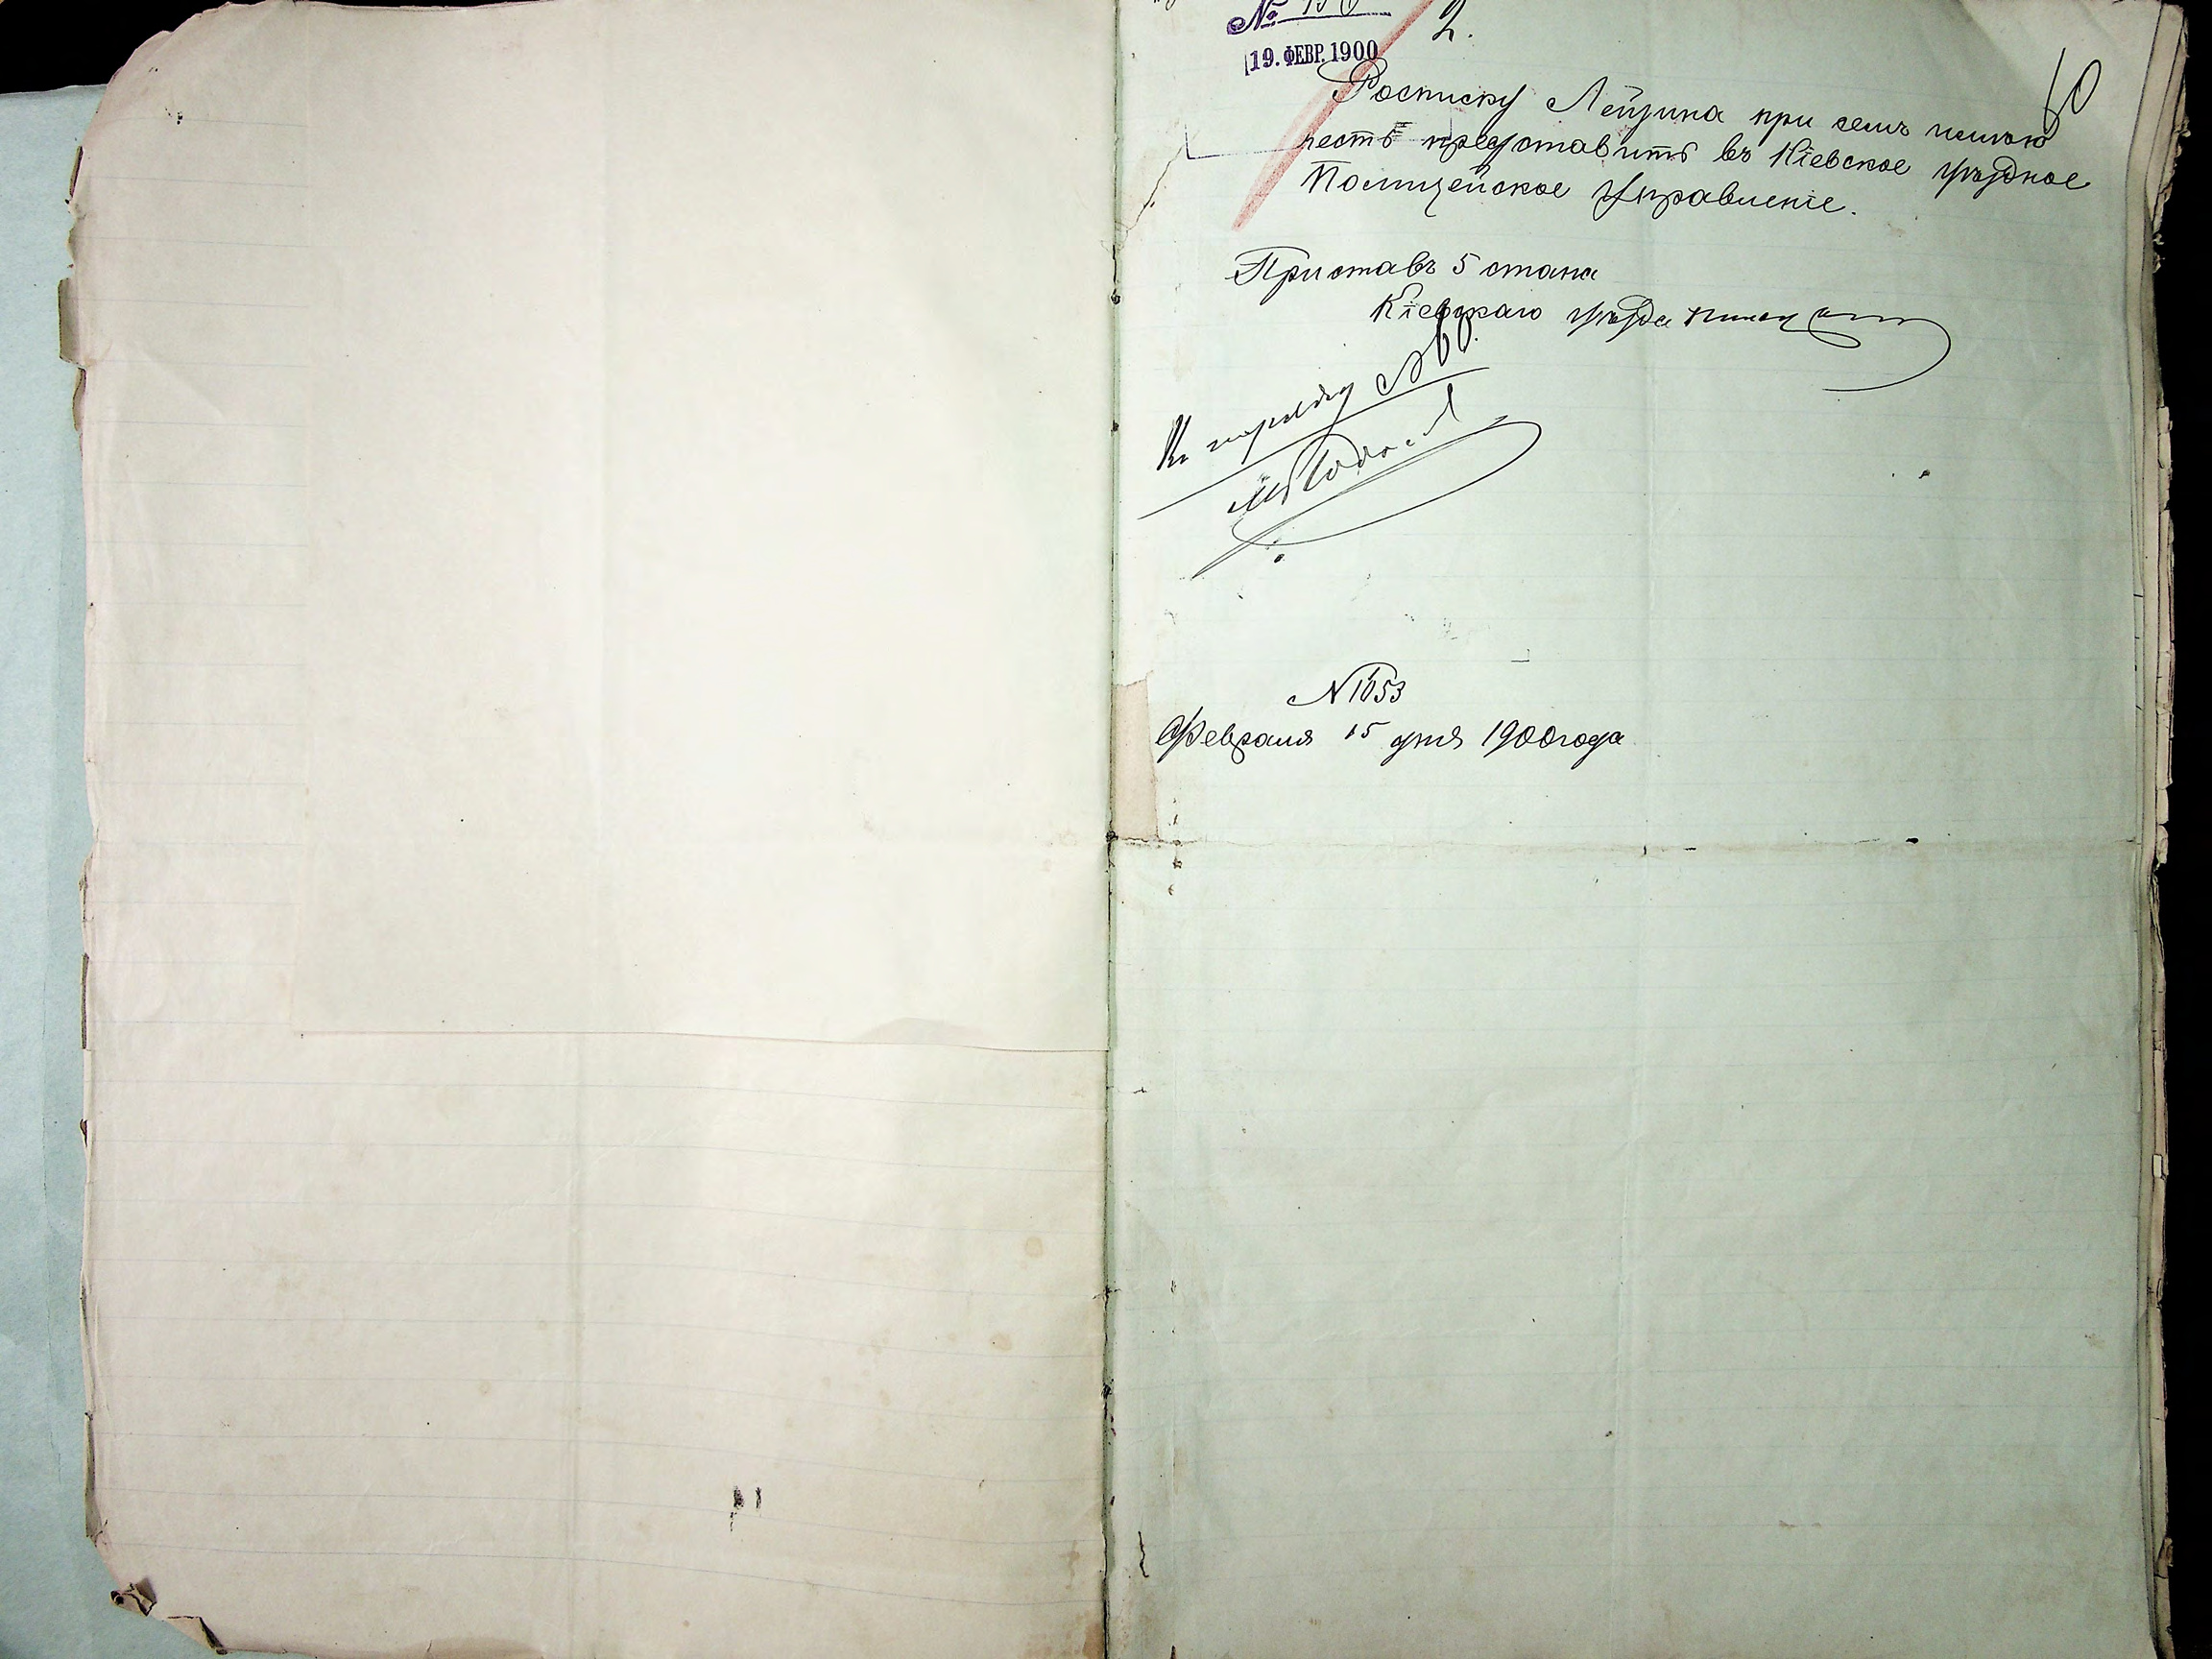 №
2.
19. ФЕВР. 1900
60
Росписку Лейзина при семъ имѣю
честь представить въ Кіевское уѣздное
Полицейское Управленіе.
Приставъ 5 стана
Кіевскаго уѣзда
Къ наряду
№ 1053
Февраля 15 дня 1900 года